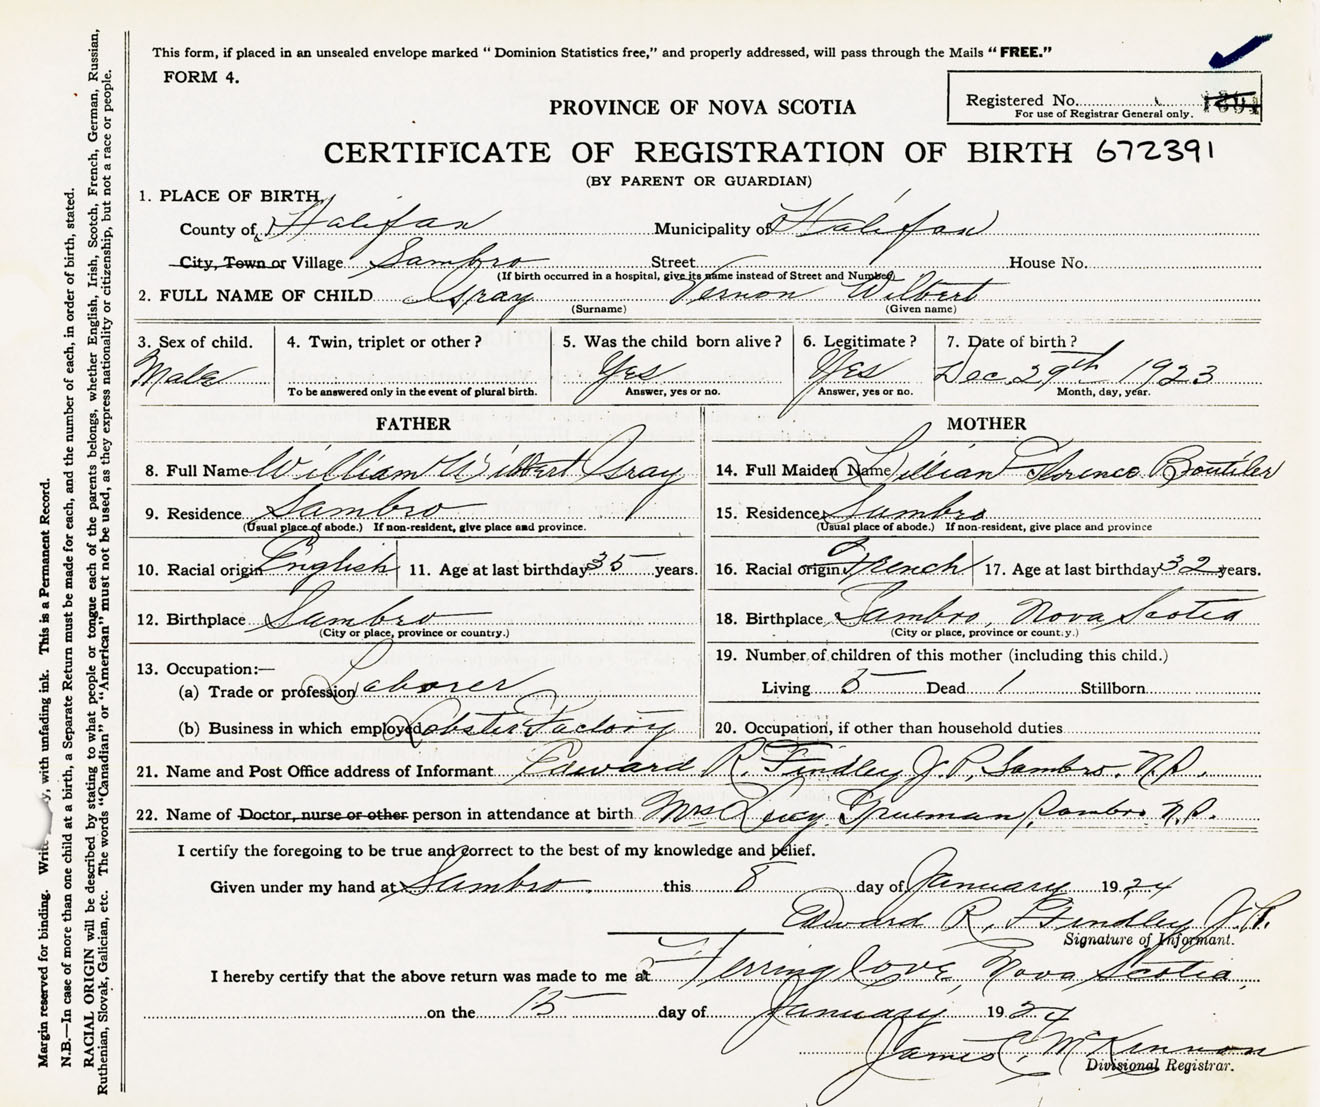 This form, if placed in an unsealed envelope marked “Dominion Statistics free,” and properly addressed, will pass through the Mails “FREE.”
FORM 4.
Registered No.
For use of Registrar General only.
PROVINCE OF NOVA SCOTIA
CERTIFICATE OF REGISTRATION OF BIRTH 672391
(BY PARENT OR GUARDIAN)
1. PLACE OF BIRTH,
County of Halifax Municipality of Halifax
City, Town or Village Sambro Street House No.
(If birth occurred in a hospital, give its name instead of Street and Number)
2. FULL NAME OF CHILD Gray Vernon Wilbert
(Surname) (Given name)
3. Sex of child. 4. Twin, triplet or other? 5. Was the child born alive? 6. Legitimate? 7. Date of birth?
Male Yes Yes Dec 29th 1923
To be answered only in the event of plural birth. Answer, yes or no. Answer, yes or no. Month, day, year.
FATHER MOTHER
8. Full Name William Wilbert Gray 14. Full Maiden Name Lillian Florence Boutilier
9. Residence Sambro 15. Residence Sambro
(Usual place of abode.) If non-resident, give place and province. (Usual place of abode.) If non-resident, give place and province
10. Racial origin English 11. Age at last birthday 35 years. 16. Racial origin French 17. Age at last birthday 32 years.
12. Birthplace Sambro 18. Birthplace Sambro, Nova Scotia
(City or place, province or country.) (City or place, province or country.)
13. Occupation:— 19. Number of children of this mother (including this child.)
(a) Trade or profession Laborer Living 5 Dead 1 Stillborn
(b) Business in which employed Lobster Factory 20. Occupation, if other than household duties
21. Name and Post Office address of Informant Edward R. Findley J.P. Sambro. N.S.
22. Name of Doctor, nurse or other person in attendance at birth Mrs Lucy Trueman, Sambro N.S.
I certify the foregoing to be true and correct to the best of my knowledge and belief.
Given under my hand at Sambro this 8 day of January 1924
Edward R. Findley J.P.
Signature of Informant.
I hereby certify that the above return was made to me at Herring Cove, Nova Scotia,
on the 15 day of January 1924
James C. McKinnon
Divisional Registrar.
Margin reserved for binding. Write with unfading ink. This is a Permanent Record.
N.B.—In case of more than one child at a birth, a Separate Return must be made for each, and the number of each, in order of birth, stated.
RACIAL ORIGIN will be described by stating to what people or tongue each of the parents belongs, whether English, Irish, Scotch, French, German, Russian,
Ruthenian, Slovak, Galician, etc. The words “Canadian” or “American” must not be used, as they express nationality or citizenship, but not a race or people.